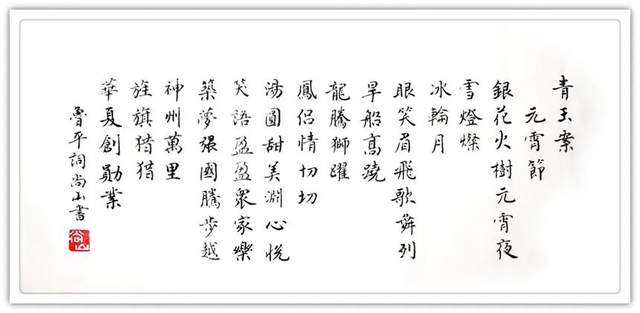 青玉案
元宵節
銀花火樹元宵夜
雪燈燦
冰輪月
眼笑眉飛歌舞列
旱船高蹺
龍騰獅躍
鳳侶情切切
湯圓甜美淵心悅
笑語盈盈眾家樂
築夢強國騰步越
神州萬里
旌旗猎猎
華夏創勛業
魯平詞尚山書